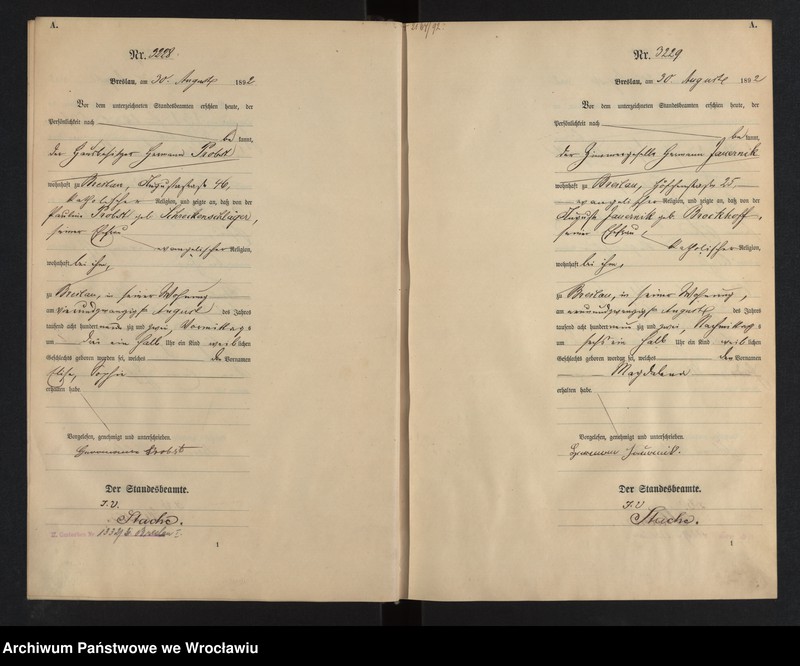 A.
Nr. 3228.
Breslau, am 30. August 1892
Vor dem unterzeichneten Standesbeamten erschien heute, der
Persönlichkeit nach
be kannt,
der Hausbesitzer Hermann Probst
wohnhaft zu Breslau, Augustastraße 46,
katholischer Religion, und zeigte an, daß von der
Pauline Probst geb.
seiner Ehefrau
evangelischer Religion,
wohnhaft bei ihm,
zu Breslau, in seiner Wohnung
am vierundzwanzigsten August des Jahres
tausend acht hundert neun zig und zwei, Vormittag s
um ein halb Uhr ein Kind weib lichen
Geschlechts geboren worden sei, welches den Vornamen
Sophie
erhalten habe.
Vorgelesen, genehmigt und unterschrieben.
Herrmann Probst
Der Standesbeamte.
I.V.
Stache.
1
2164/92
A.
Nr. 3229
Breslau, am 30 August 1892
Vor dem unterzeichneten Standesbeamten erschien heute, der
Persönlichkeit nach
be kannt,
der Zimmergeselle Hermann Jauernik
wohnhaft zu Breslau, Höfchenstraße 25
evangelischer Religion, und zeigte an, daß von der
Auguste Jauernik geb. Brockhoff,
seiner Ehefrau,
katholischer Religion,
wohnhaft bei ihm,
zu Breslau, in seiner Wohnung,
am neunundzwanzigsten August des Jahres
tausend acht hundert neun zig und zwei, Nachmittag s
um sechs ein halb Uhr ein Kind weib lichen
Geschlechts geboren worden sei, welches den Vornamen
Magdalena
erhalten habe.
Vorgelesen, genehmigt und unterschrieben.
Hermann Jauernik.
Der Standesbeamte.
I.V
Stache.
1
Archiwum Państwowe we Wrocławiu